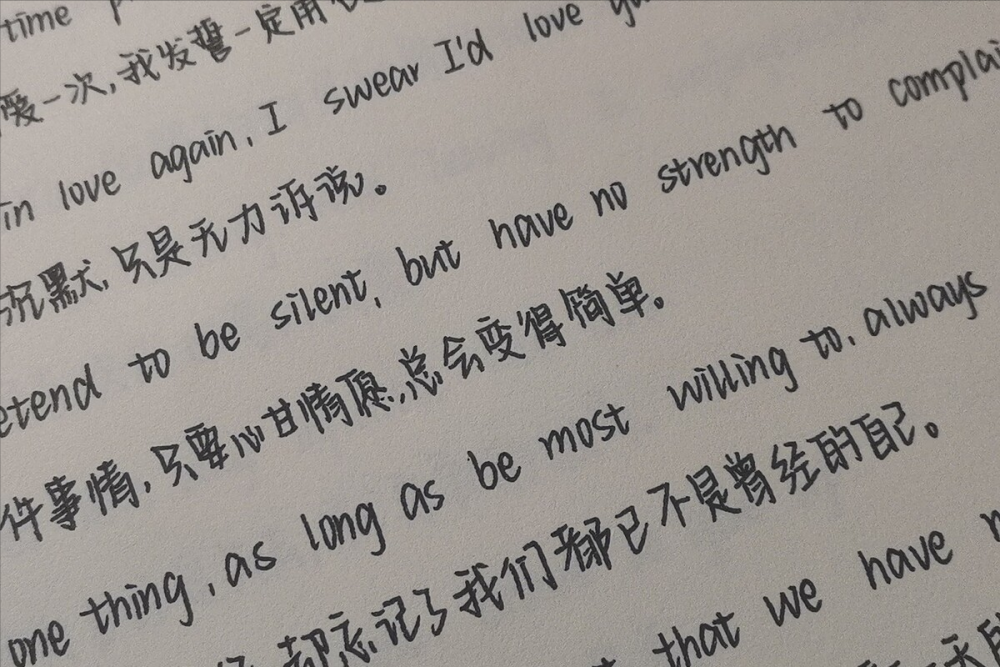 time
爱一次,我发誓一定用
in love again, I swear I'd love
沉默,只是无力诉说。
etend to be silent, but have no strength to complai
件事情,只要心甘情愿,总会变得简单。
one thing, as long as be most willing to, always
都忘记了我们都已不是曾经的自己。
that we have